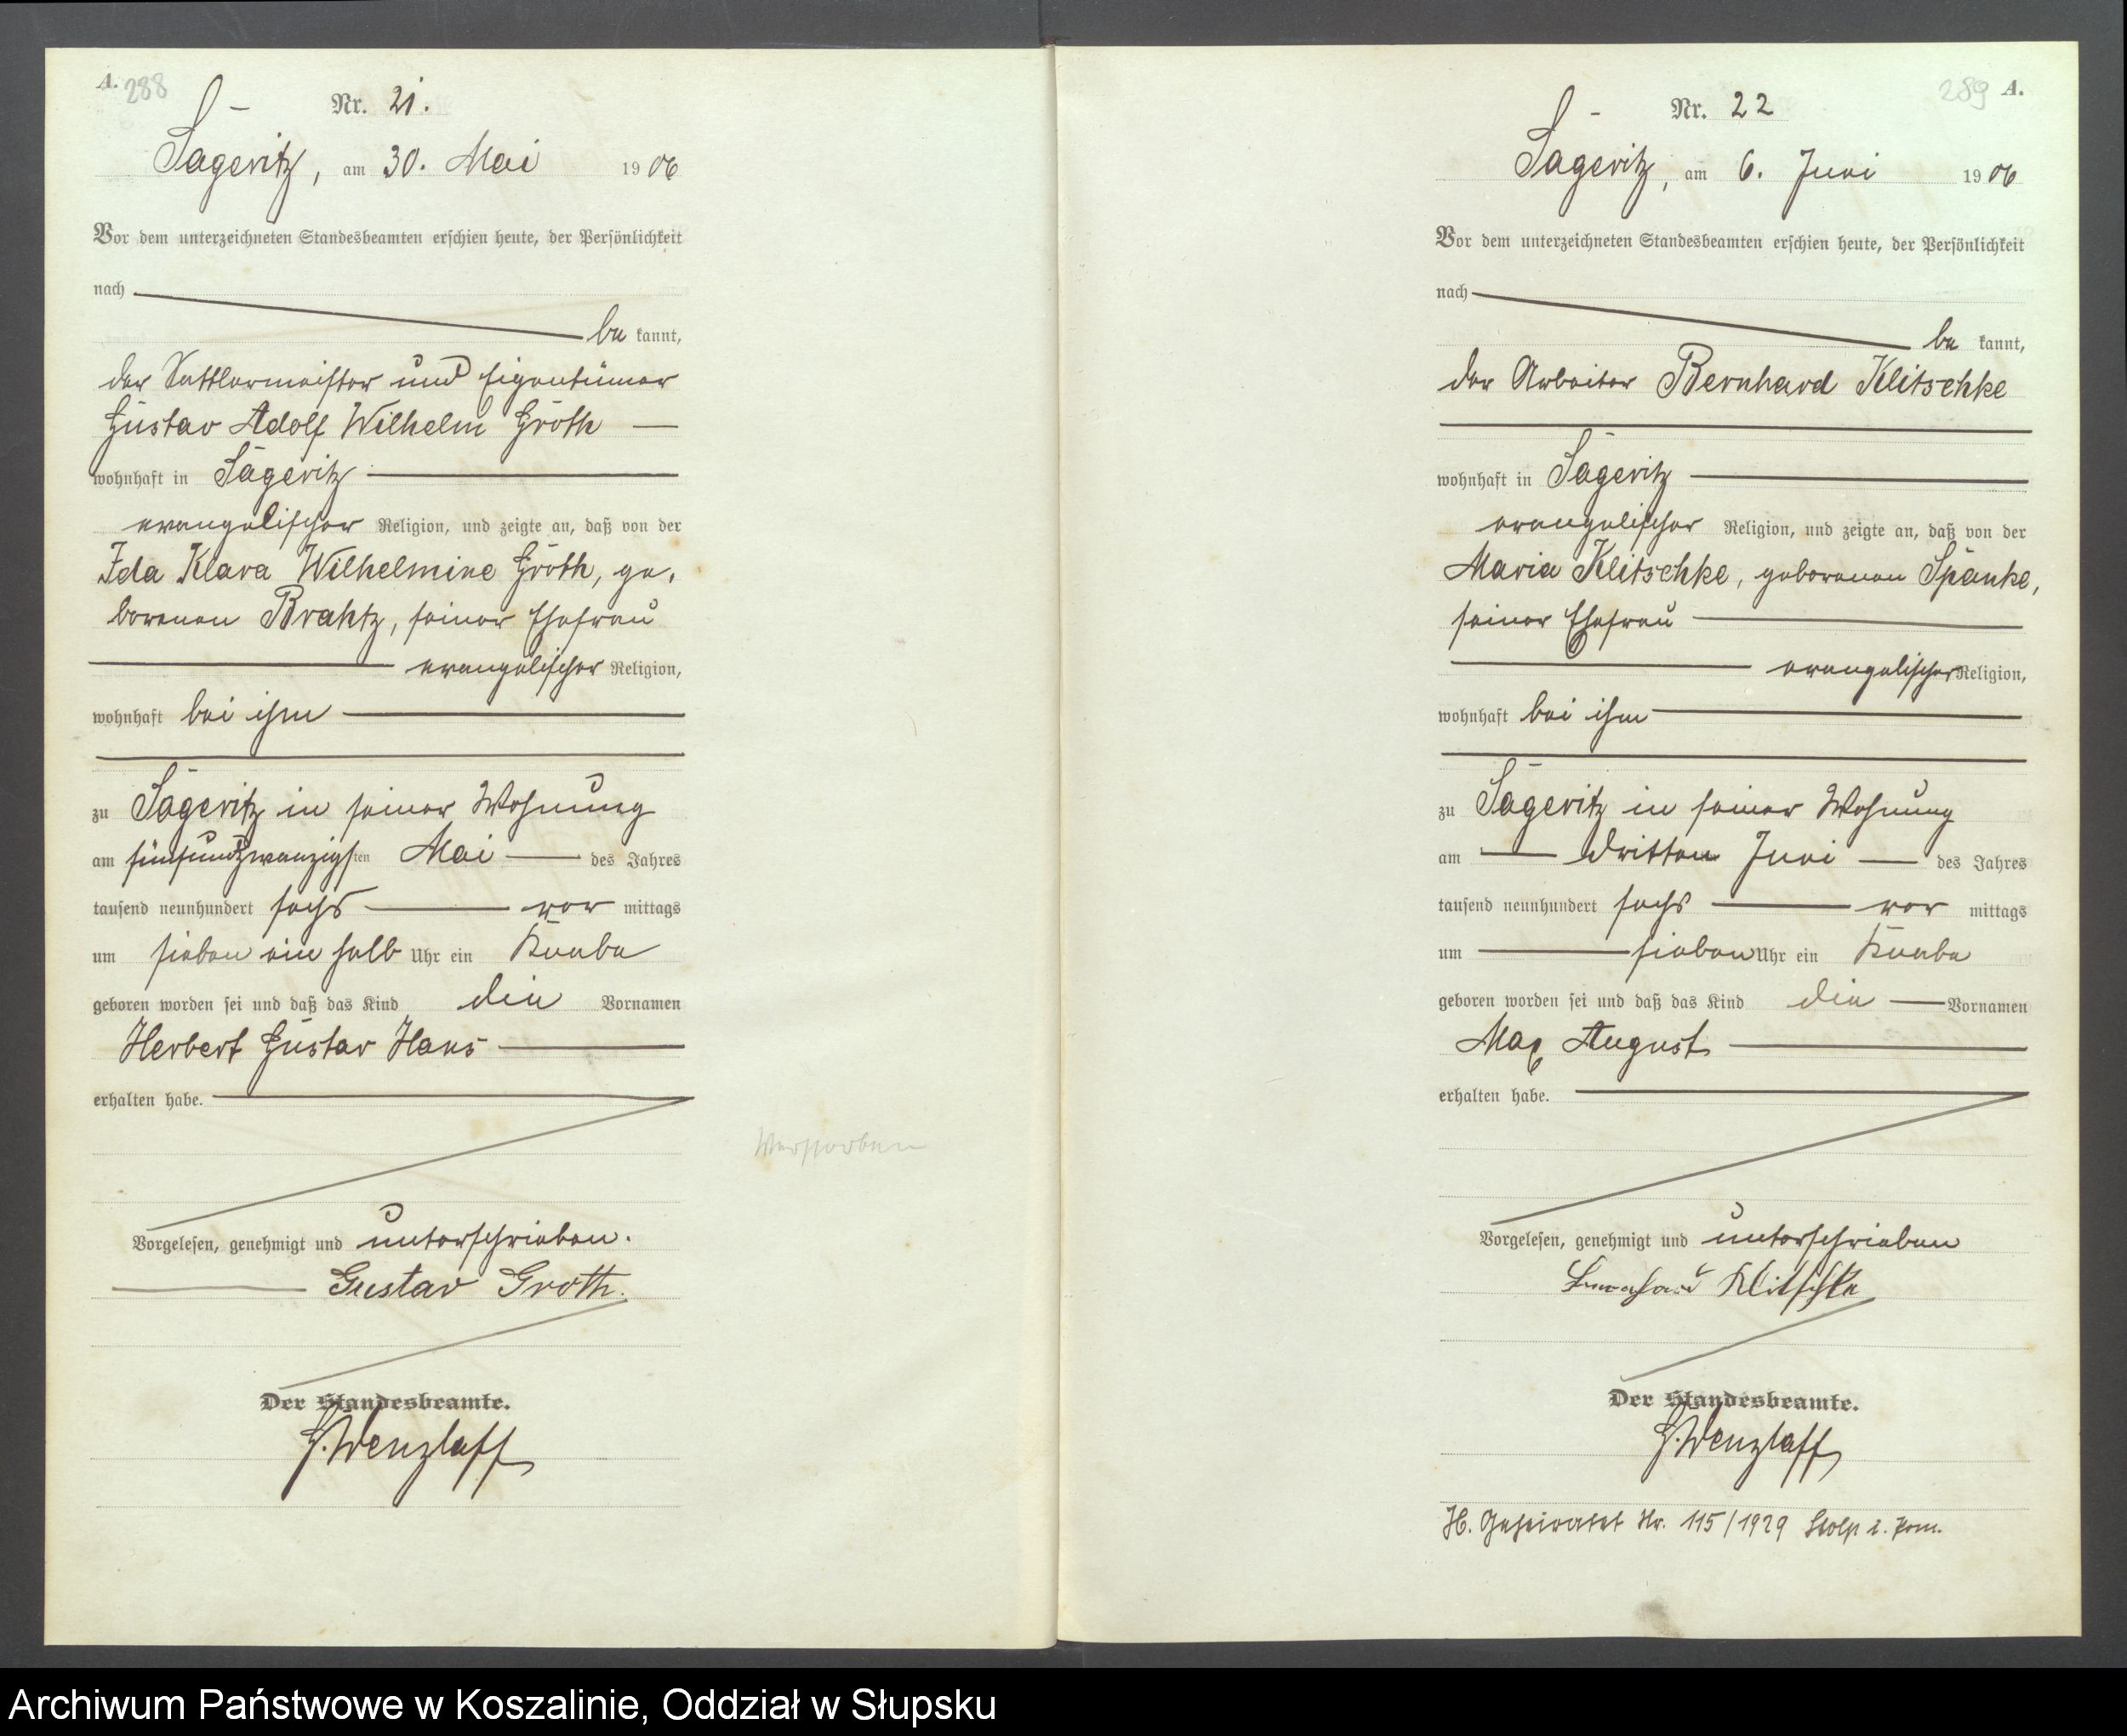 A. 288
Nr. 21.
Sageritz, am 30. Mai 1906
Vor dem unterzeichneten Standesbeamten erschien heute, der Persönlichkeit
nach
be kannt,
der Sattlermeister und Eigentümer
Gustav Adolf Wilhelm Groth
wohnhaft in Sageritz
evangelischer Religion, und zeigte an, daß von der
Ida Klara Wilhelmine Groth, ge,
borenen Brahtz, seiner Ehefrau
evangelischer Religion,
wohnhaft bei ihm
zu Sageritz in seiner Wohnung
am fünfundzwanzigsten Mai des Jahres
tausend neunhundert sechs vor mittags
um sieben ein halb Uhr ein Knabe
geboren worden sei und daß das Kind die Vornamen
Herbert Gustav Hans
erhalten habe.
Verstorben
Vorgelesen, genehmigt und unterschrieben.
Gustav Groth.
Der Standesbeamte.
G. Wenzlaff
289 A.
Nr. 22
Sageritz, am 6. Juni 1906
Vor dem unterzeichneten Standesbeamten erschien heute, der Persönlichkeit
nach
be kannt,
der Arbeiter Bernhard Klitschke
wohnhaft in Sageritz
evangelischer Religion, und zeigte an, daß von der
Maria Klitschke, geborenen Spanke,
seiner Ehefrau
evangelischer Religion,
wohnhaft bei ihm
zu Sageritz in seiner Wohnung
am dritten Juni des Jahres
tausend neunhundert sechs vor mittags
um sieben Uhr ein Knabe
geboren worden sei und daß das Kind die Vornamen
Max August
erhalten habe.
Vorgelesen, genehmigt und unterschrieben
Bernhard Klitschke
Der Standesbeamte.
G. Wenzlaff
H. Geheiratet Nr. 115/1929 Stolp i. Pom.
Archiwum Państwowe w Koszalinie, Oddział w Słupsku